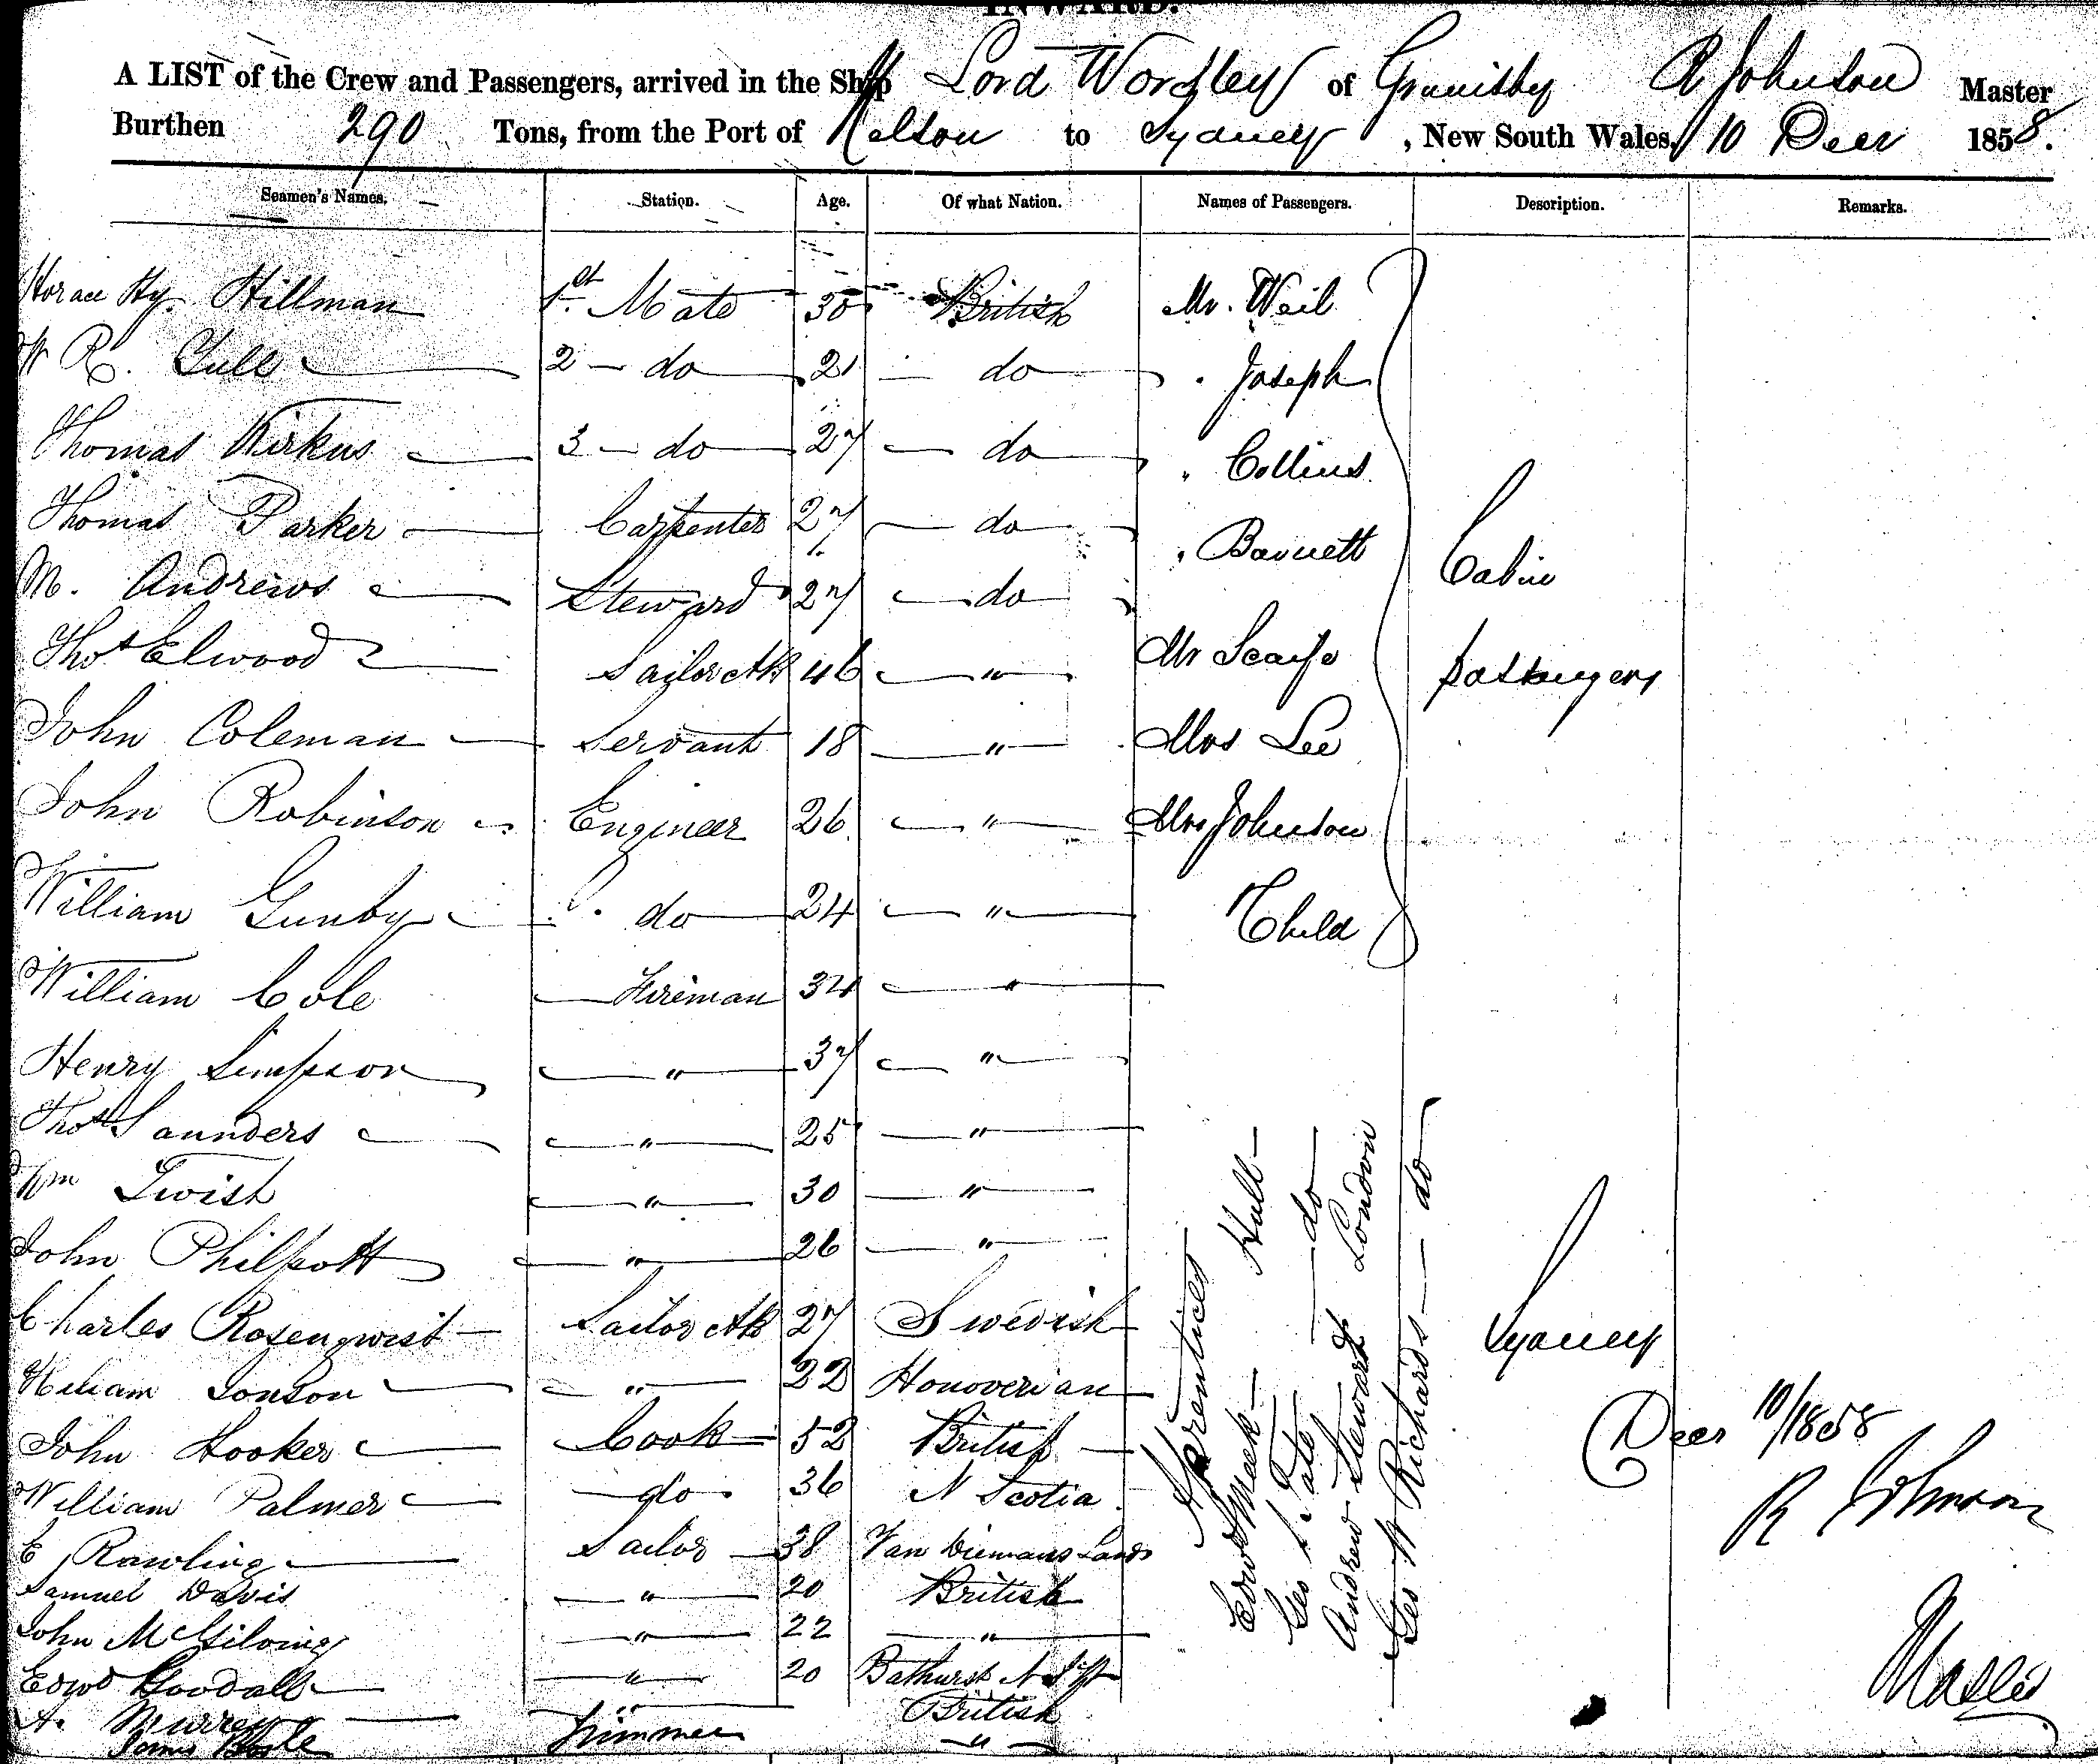 INWARD.
A LIST of the Crew and Passengers, arrived in the Ship Lord Worsley of Grimsby R Johnson Master
Burthen 290 Tons, from the Port of Nelson to Sydney, New South Wales, 10 Decr 1858.
Seamen's Names. Station. Age. Of what Nation. Names of Passengers. Description. Remarks.
Horace Hy. Hillman 1st Mate 30 British Mr. Weil
W R. 2 - do 21 do " Joseph
Thomas Kirkus 3 - do 27 do " Collins
Thomas Parker Carpenter 27 do " Barnett
M. Andrews Steward 27 do Cabin
Thos Elwood Sailor AB 46 " Mr Scaife passengers
John Coleman Servant 18 " Mrs Lee
John Robinson Engineer 26 " Mrs Johnson
William Gunby do 24 " Child
William Cole Fireman 34 "
Henry Simpson " 37 "
Thos Saunders " 25 "
Wm Twist " 30 "
John Philpott " 26 "
Charles Rosenqwist Sailor AB 27 Swedish Sydney
Jonson " 22 Honoverian
John Hooker Cook 52 British Decr 10/1858
William Palmer do 36 N Scotia R Johnson
E Rawling Sailor 38 Van Diemans Land
Samuel Davis " 20 British
John " 22 "
Edwd Goodall " 20 Bathurst Master
A. Murray " British
James Trimmer "
Aprentices
Edwd Mack - Hull -
Geo Tate - do -
Andrew Stewart London
Geo W Richards - do -